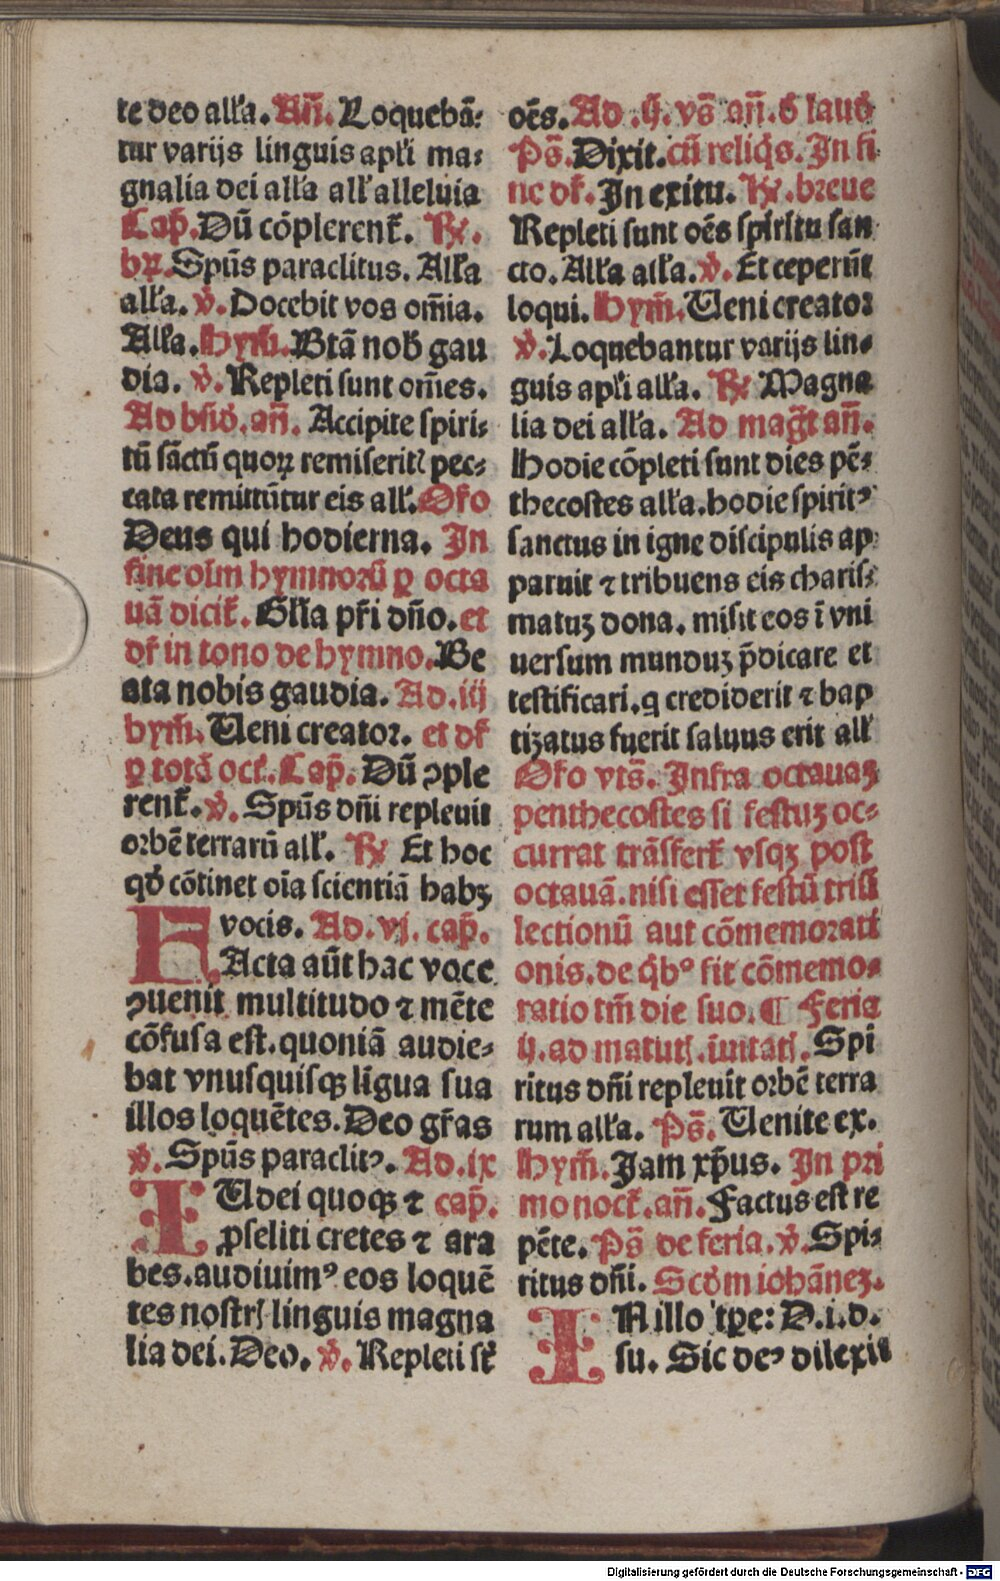 te deo alľa. Añ. Loquebā:
tur varijs linguis apľi ma:
gnalia dei alľa alľ alleluia
Cap̃. Dū cōplerent̃. R̃.
br̃. Spūs paraclitus. Alľa
alľa. v̇. Docebit vos om̄ia.
Alľa. hym̃. Btā nob̃ gau
dia. v̇. Repleti sunt om̄es.
Ad bn̄d̃. añ. Accipite spiri:
tū sāctū quoꝝ remiserit̃ pec:
cata remittūtur eis alľ. Or̃o
Deus qui hodierna. In
fine olm hymnorū ꝑ octa
uā dicit̃. Gľia pr̃i dño. et
dr̃ in tono de hymno. Be
ata nobis gaudia. Ad .iij
hym̃. Ueni creator. et dr̃
ꝑ totā oct̃. Cap̃. Dū ↄple
rent̃. v̇. Spūs dñi repleuit
orbē terrarū alľ. R̃ Et hoc
qd̃ cōtinet oīa scientiā habꝫ
vocis. Ad .vj. cap̃.
FActa aūt hac voce
ↄuenit multitudo ⁊ mēte
cōfusa est. quoniā audie:
bat vnusquisqꝫ ligua sua
illos loquētes. Deo gr̃as
v̇. Spūs paraclitꝰ. Ad .ix
IUdei quoqꝫ ⁊ cap̃.
ꝓseliti cretes ⁊ ara
bes. audiuimꝰ eos loquē
tes nostrꝭ linguis magna
lia dei. Deo. v̇. Repleti st̃
oēs. Ad .ij. vs̃ añ. d̃ laud̃
Ps̃. Dixit. cū reliq̇s. In fi
ne dr̃. In exitu. R̃. breue
Repleti sunt oēs spiritu san
cto. Alľa alľa. v̇. Et ceperūt
loqui. hym̃. Ueni creator
v̇. Loquebantur varijs lin:
guis apľi alľa. R̃ Magna
lia dei alľa. Ad mag̃t añ.
Hodie cōpleti sunt dies pē:
thecostes alľa. hodie spiritꝰ
sanctus in igne discipulis ap:
paruit ⁊ tribuens eis charis:
matuꝫ dona. misit eos ī vni
uersum munduꝫ p̄dicare et
testificari. q crediderit ⁊ bap
tizatus fuerit saluus erit alľ
Or̃o vts̃. Infra octauaꝫ
penthecostes si festuꝫ oc:
currat trāsfert̃ vsqꝫ post
octauā. nisi esset festū triū
lectionū aut cōmemorati
onis. de q̇bꝰ fit cōmemo:
ratio tm̄ die suo. ¶ Feria
ij. ad matutꝭ. īuitatꝭ. Spi
ritus dñi repleuit orbē terra
rum alľa. Ps̃. Uenite ex.
hym̃. Jam xp̄us. In pri
mo noct̃. añ. Factus est re
pēte. Ps̃ de feria. v̇. Spi:
ritus dñi. Scd̃m iohānez.
IN illo tꝑe: D.i.d.
su. Sic deꝰ dilexit
Digitalisierung gefördert durch die Deutsche Forschungsgemeinschaft - DFG